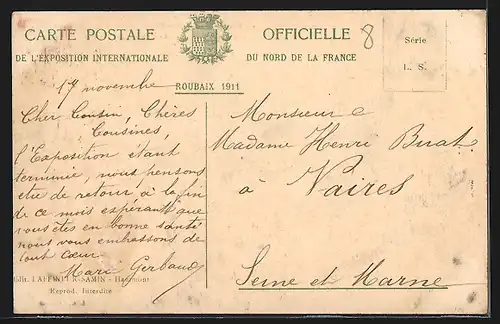 CARTE POSTALE OFFICIELLE
DE L'EXPOSITION INTERNATIONALE DU NORD DE LA FRANCE
ROUBAIX 1911
8
Série
L. S.
17 novembre
Cher Cousin, Chères
Cousines,
l'Exposition étant
terminée, nous pensons
être de retour à la fin
de ce mois espérant que
vous êtes en bonne santé
nous vous embrassons de
tout cœur.
Marie Gerbaud
Edit. LAFFINEUR-SAMIN - Hautmont
Reprod. Interdite
Monsieur e
Madame Henri Buat
à Vaires
Seine et Marne